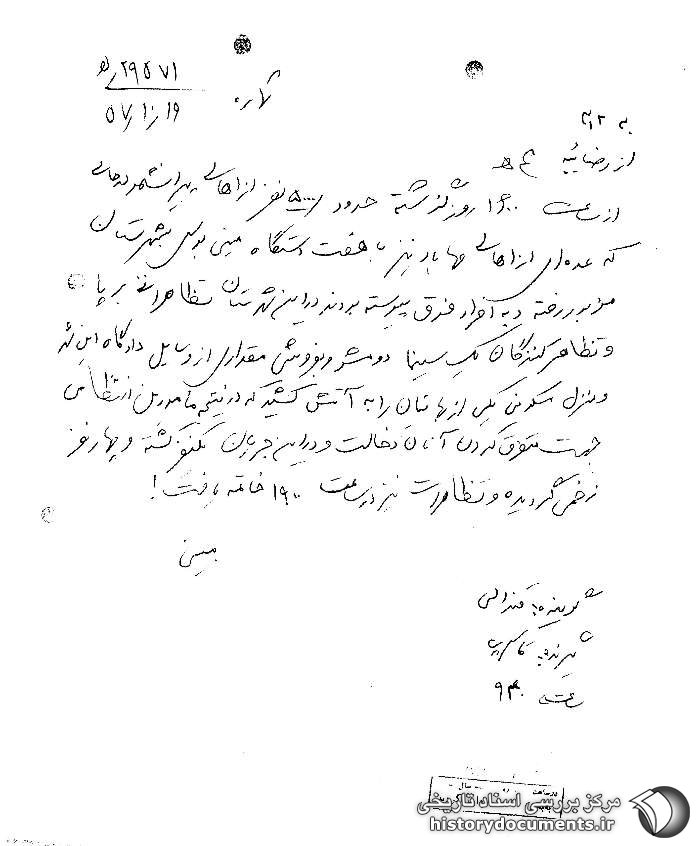 شماره ۲۹۵۷۱/ﻫ
۵۷/۱۰/۱۹
به ۳۱۲
از رضائیه ﻫ ع
از ساعت ۱۶۰۰ روز گذشته حدود ۵۰۰۰ نفر از اهالی پیرانشهر در حالی
که عده‌ای از اهالی مهاباد نیز با هفت دستگاه مینی بوس بشهرستان
مزبور رفته و به افراد فوق پیوسته بودند در این شهرستان تظاهراتی برپا
و تظاهرکنندگان یک سینما دو مشروبفروشی مقداری از وسایل دادگاه این شهر
و منزل مسکونی یکی از پاسبانان را به آتش کشیدند که در نتیجه مامورین انتظامی
جهت متفرق کردن آنان دخالت و در این جریان یکنفر کشته و چهار نفر
زخمی گردیده و تظاهرات نیز در ساعت ۱۹۰۰ خاتمه یافت!
گوینده:
گیرنده:
ساعت ۹۴۰
مرکز بررسی اسناد تاریخی
historydocuments.ir